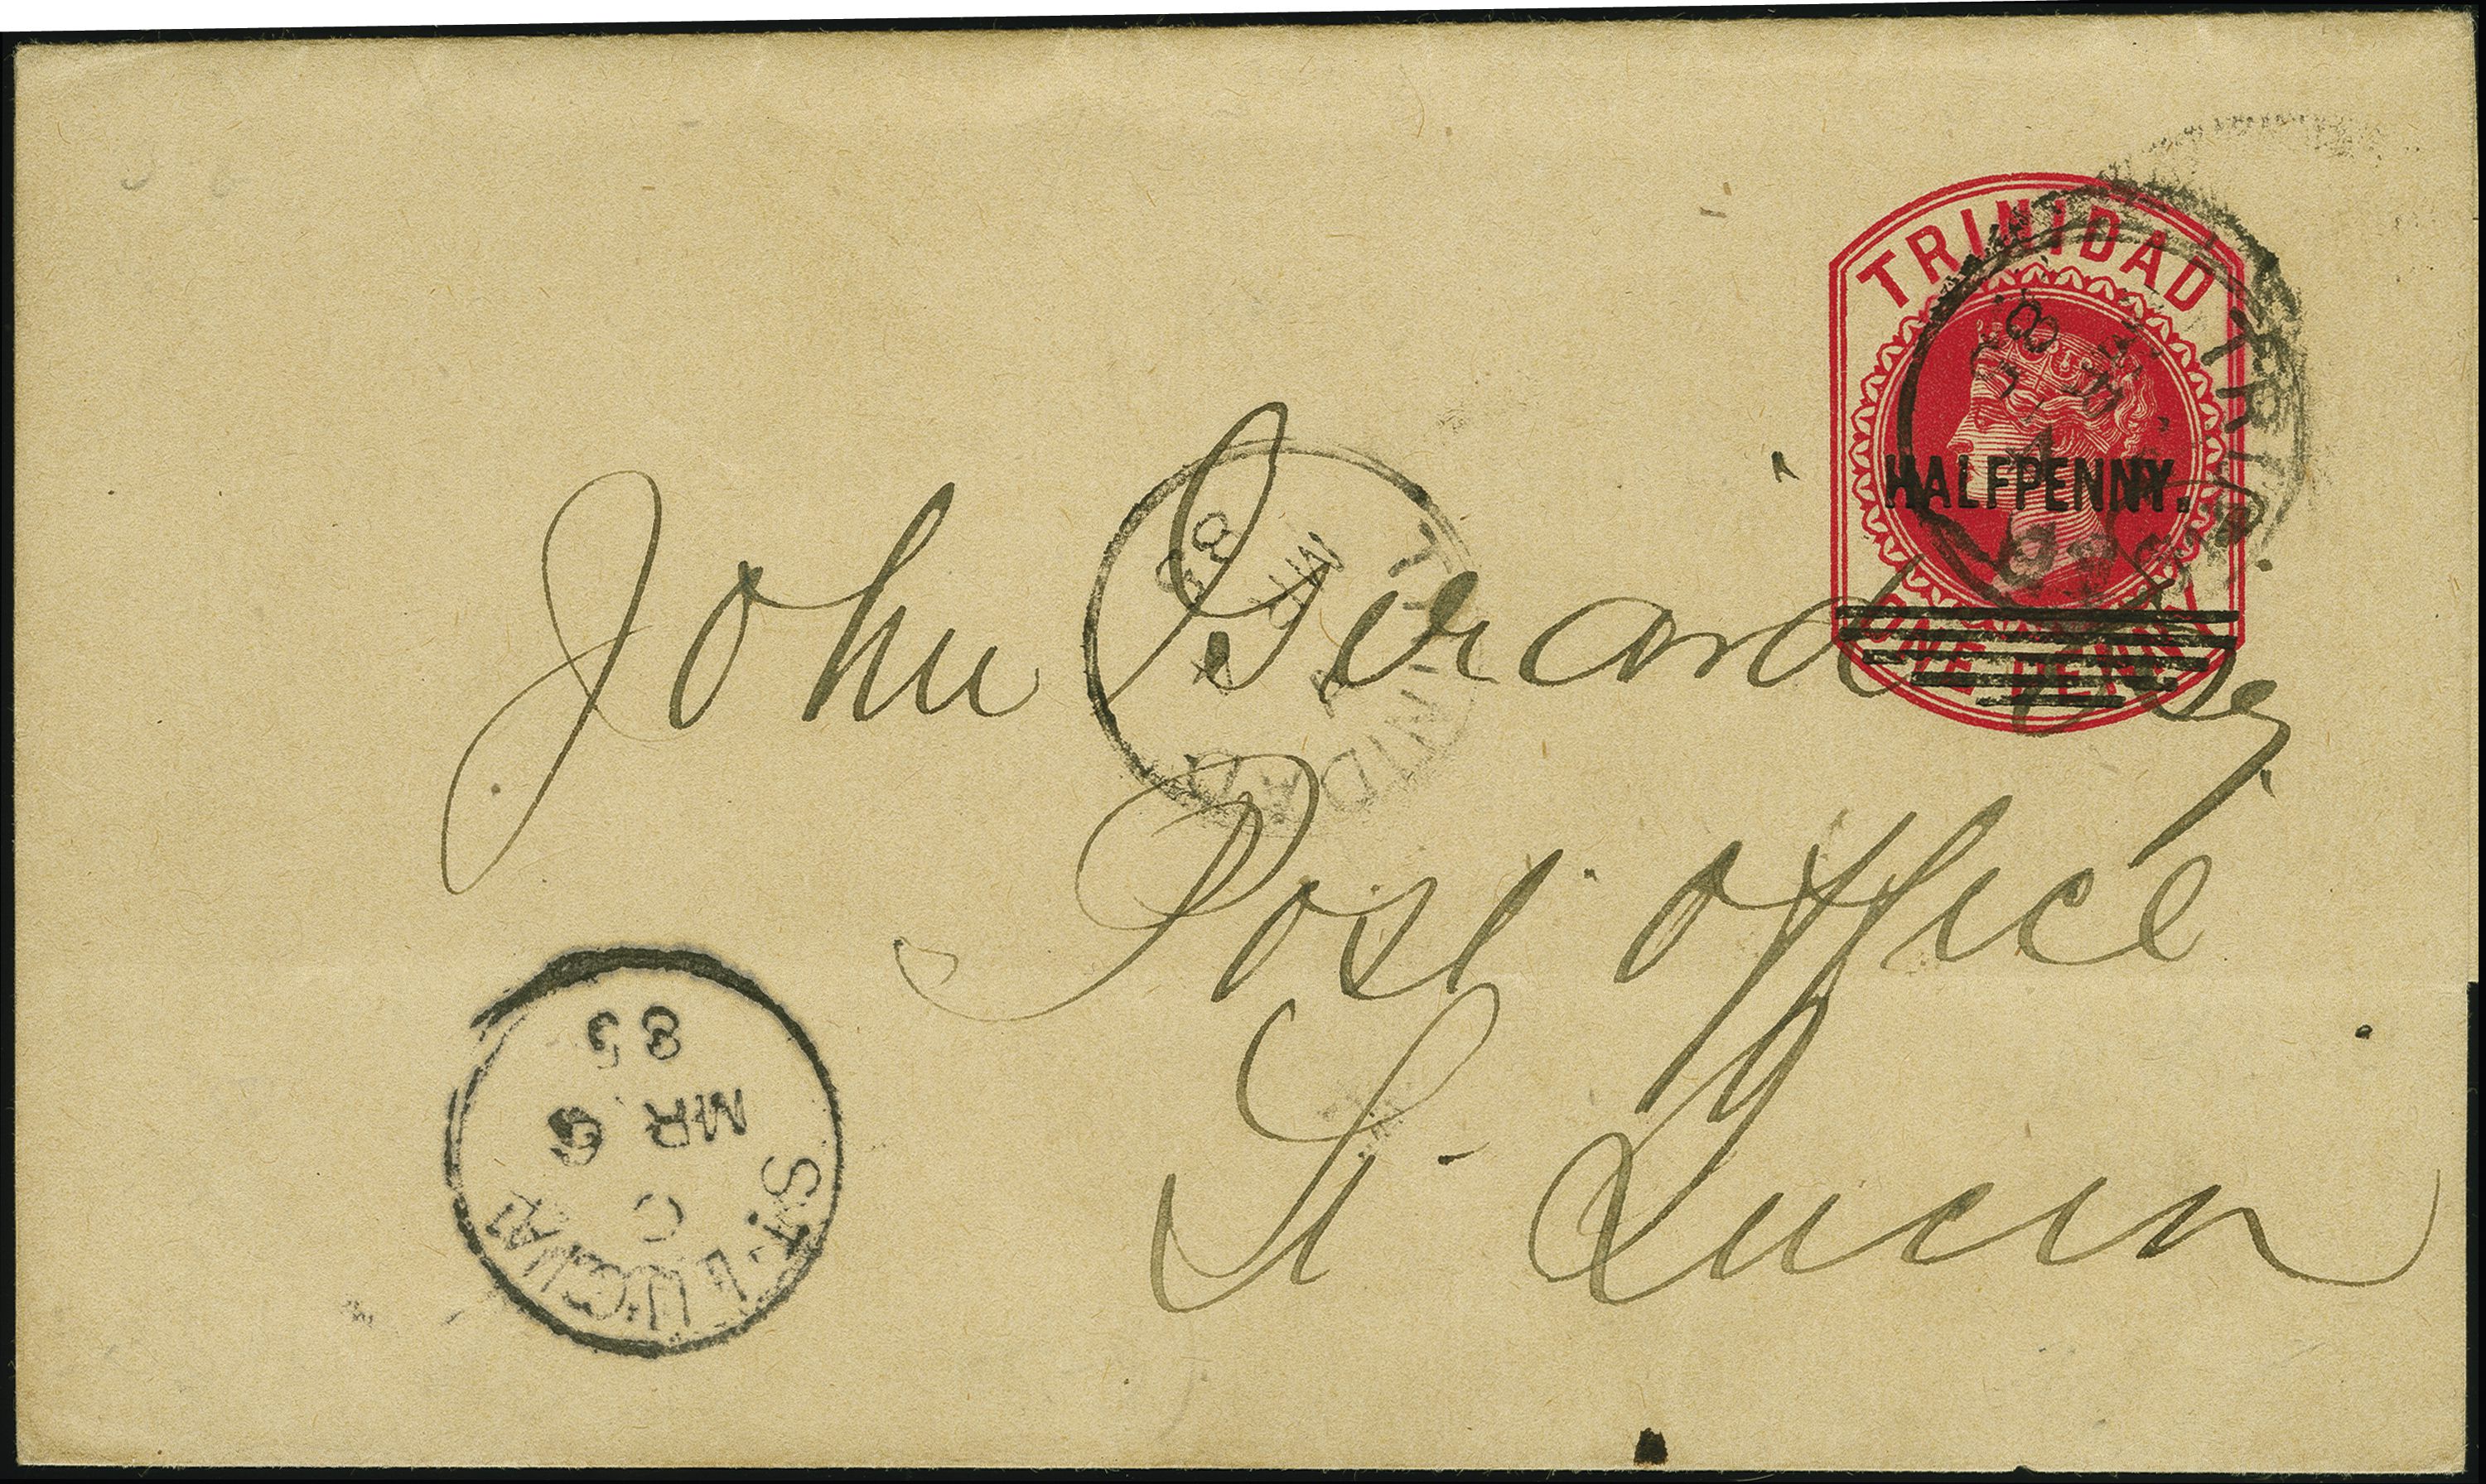 TRINIDAD
HALFPENNY.
ONE PENNY
TRINIDAD
TRINIDAD
MR
John Girard Esq
Post Office
St. Lucia
ST. LUCIA
C
MR 6
85